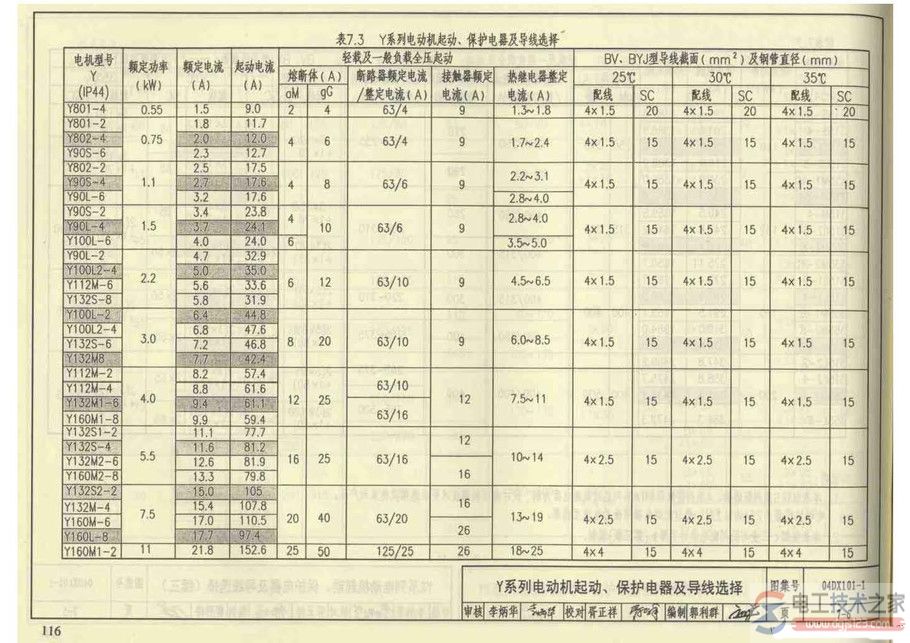 表7.3 Y系列电动机起动、保护电器及导线选择
电机型号 Y (IP44) 额定功率 (kW) 额定电流 (A) 起动电流 (A) 轻载及一般负载全压起动 BV、BYJ型导线截面(mm²)及钢管直径(mm)
熔断体(A) 断路器额定电流/整定电流(A) 接触器额定电流(A) 热继电器整定电流(A) 25℃ 30℃ 35℃
aM gG 配线 SC 配线 SC 配线 SC
Y801-4 0.55 1.5 9.0 2 4 63/4 9 1.3~1.8 4×1.5 20 4×1.5 20 4×1.5 20
Y801-2 1.8 11.7
Y802-4 0.75 2.0 12.0 4 6 63/4 9 1.7~2.4 4×1.5 15 4×1.5 15 4×1.5 15
Y90S-6 2.3 12.7
Y802-2 2.5 17.5
Y90S-4 1.1 2.7 17.6 4 8 63/6 9 2.2~3.1 4×1.5 15 4×1.5 15 4×1.5 15
Y90L-6 3.2 17.6 2.8~4.0
Y90S-2 3.4 23.8 4 2.8~4.0
Y90L-4 1.5 3.7 24.1 10 63/6 9 4×1.5 15 4×1.5 15 4×1.5 15
Y100L-6 4.0 24.0 6 3.5~5.0
Y90L-2 4.7 32.9
Y100L2-4 2.2 5.0 35.0 6 12 63/10 9 4.5~6.5 4×1.5 15 4×1.5 15 4×1.5 15
Y112M-6 5.6 33.6
Y132S-8 5.8 31.9
Y100L-2 6.4 44.8
Y100L2-4 3.0 6.8 47.6 8 20 63/10 9 6.0~8.5 4×1.5 15 4×1.5 15 4×1.5 15
Y132S-6 7.2 46.8
Y132M8 7.7 42.4
Y112M-2 8.2 57.4 63/10
Y112M-4 4.0 8.8 61.6 12 25 12 7.5~11 4×1.5 15 4×1.5 15 4×1.5 15
Y132M1-6 9.4 61.1 63/16
Y160M1-8 9.9 59.4
Y132S1-2 11.1 77.7 12
Y132S-4 5.5 11.6 81.2 16 25 63/16 10~14 4×2.5 15 4×2.5 15 4×2.5 15
Y132M2-6 12.6 81.9 16
Y160M2-8 13.3 79.8
Y132S2-2 15.0 105 16
Y132M-4 7.5 15.4 107.8 20 40 63/20 13~19 4×2.5 15 4×2.5 15 4×2.5 15
Y160M-6 17.0 110.5 26
Y160L-8 17.7 97.4
Y160M1-2 11 21.8 152.6 25 50 125/25 26 18~25 4×4 15 4×4 15 4×4 15
Y系列电动机起动、保护电器及导线选择 图集号 04DX101-1
审核 李炳华 校对 胥正祥 编制 郭利群 页
116
电工技术之家
www.dgjs123.com